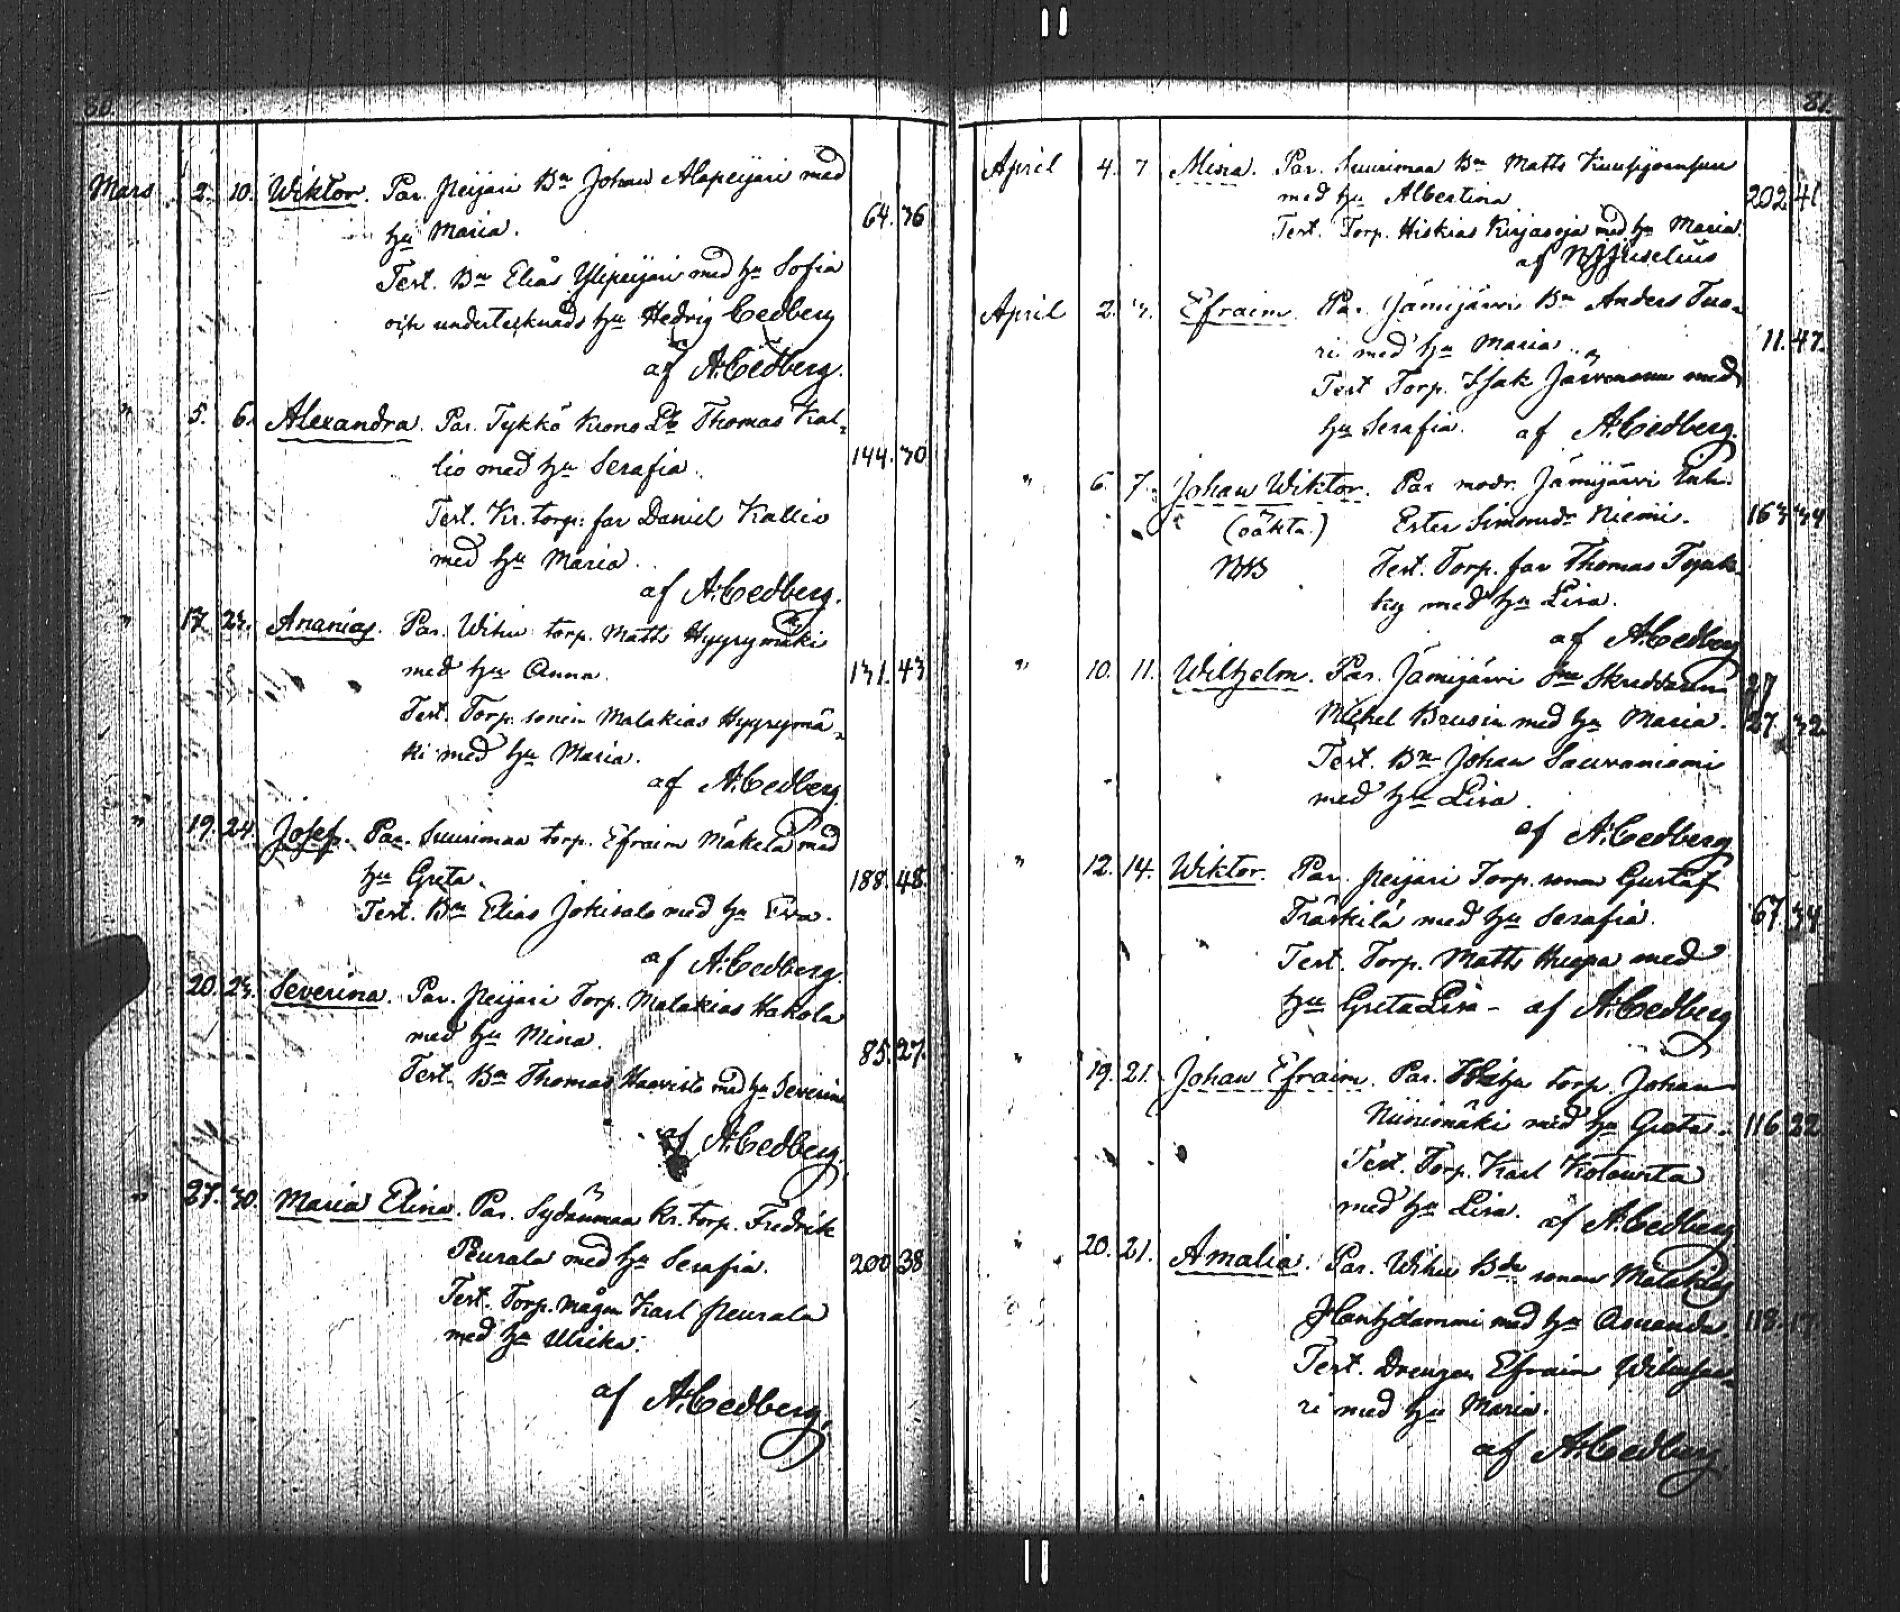 80.
Mars 2. 10. Wiktor. Par. Peijari Bn Johan Alapeijari med
hu Maria. 64. 36
Test. Bn Elias Ylipeijari med hu Sofia
och undertecknads hu Hedvig Cedberg
af A. Cedberg.
" 5. 6. Alexandra. Par. Tykkö Krono Tp Thomas Kal-
lio med hu Serafia. 144. 30
Test. Kr. torp: far Daniel Kallio
med hu Maria.
af A. Cedberg.
" 17 23. Ananias. Par. Wihu torp. Matts Hyyrymäki
med hu Anna. 131. 43
Test. Torp. sonen Malakias Hyyrymä-
ki med hu Maria.
af A. Cedberg.
" 19. 24. Josef. Par. Suurimaa torp. Efraim Mäkelä med
hu Greta. 188. 48.
Test. Bn Elias Jokisalo med hu Eva.
af A. Cedberg.
20. 23. Severina. Par. Peijari Torp. Malakias Hakola
med hu Mina. 85. 27.
Test. Bn Thomas Haavisto med hu Severina
af A. Cedberg.
" 27. 30. Maria Elina. Par. Sydänmaa Kr. torp. Fredrik
Peurala med hu Serafia. 200 38
Test. Torp. mågen Karl Peurala
med hu Ulrika.
af A. Cedberg.
81.
April 4. 7 Mina. Par. Suurimaa Bn Matts
med hu Albertina 202 41
Test. Torp. Hiskias Kirjasoja med hu Maria.
af
April 2. 3. Efraim. Par. Jämijärvi Bn Anders Tuo-
ri med hu Maria 11. 47.
Test Torp. Isak Järvenman med
hu Serafia. af A. Cedberg.
" 6. 7. Johan Wiktor. Par modr. Jämijärvi Inh.
(oäkta.) Ester Simonsdr Niemi. 163 34
NB Test. Torp. far Thomas
med hu Lisa.
af A. Cedberg
" 10. 11. Wilhelm. Par. Jämijärvi Sn Skreddaren 27
Michel Brusin med hu Maria. 27 32
Test. Bn Johan Sauvaniemi
med hu Lisa.
af A. Cedberg
" 12. 14. Wiktor. Par. Peijari Torp. sonen Gustaf
Träskilä med hu Serafia. 67. 34
Test. Torp. Matts Huopa med
hu Greta Lisa - af A. Cedberg
" 19. 21. Johan Efraim. Par. Wihu torp. Johan
Niinimäki med hu Greta. 116 22
Test. Torp. Karl Kotowita
med hu Lisa. af A. Cedberg
" 20. 21. Amalia. Par. Wihu Bde sonen Malakias
med hu Amanda. 118.
Test. Drengen Efraim
ri med hu Maria.
af A. Cedberg.